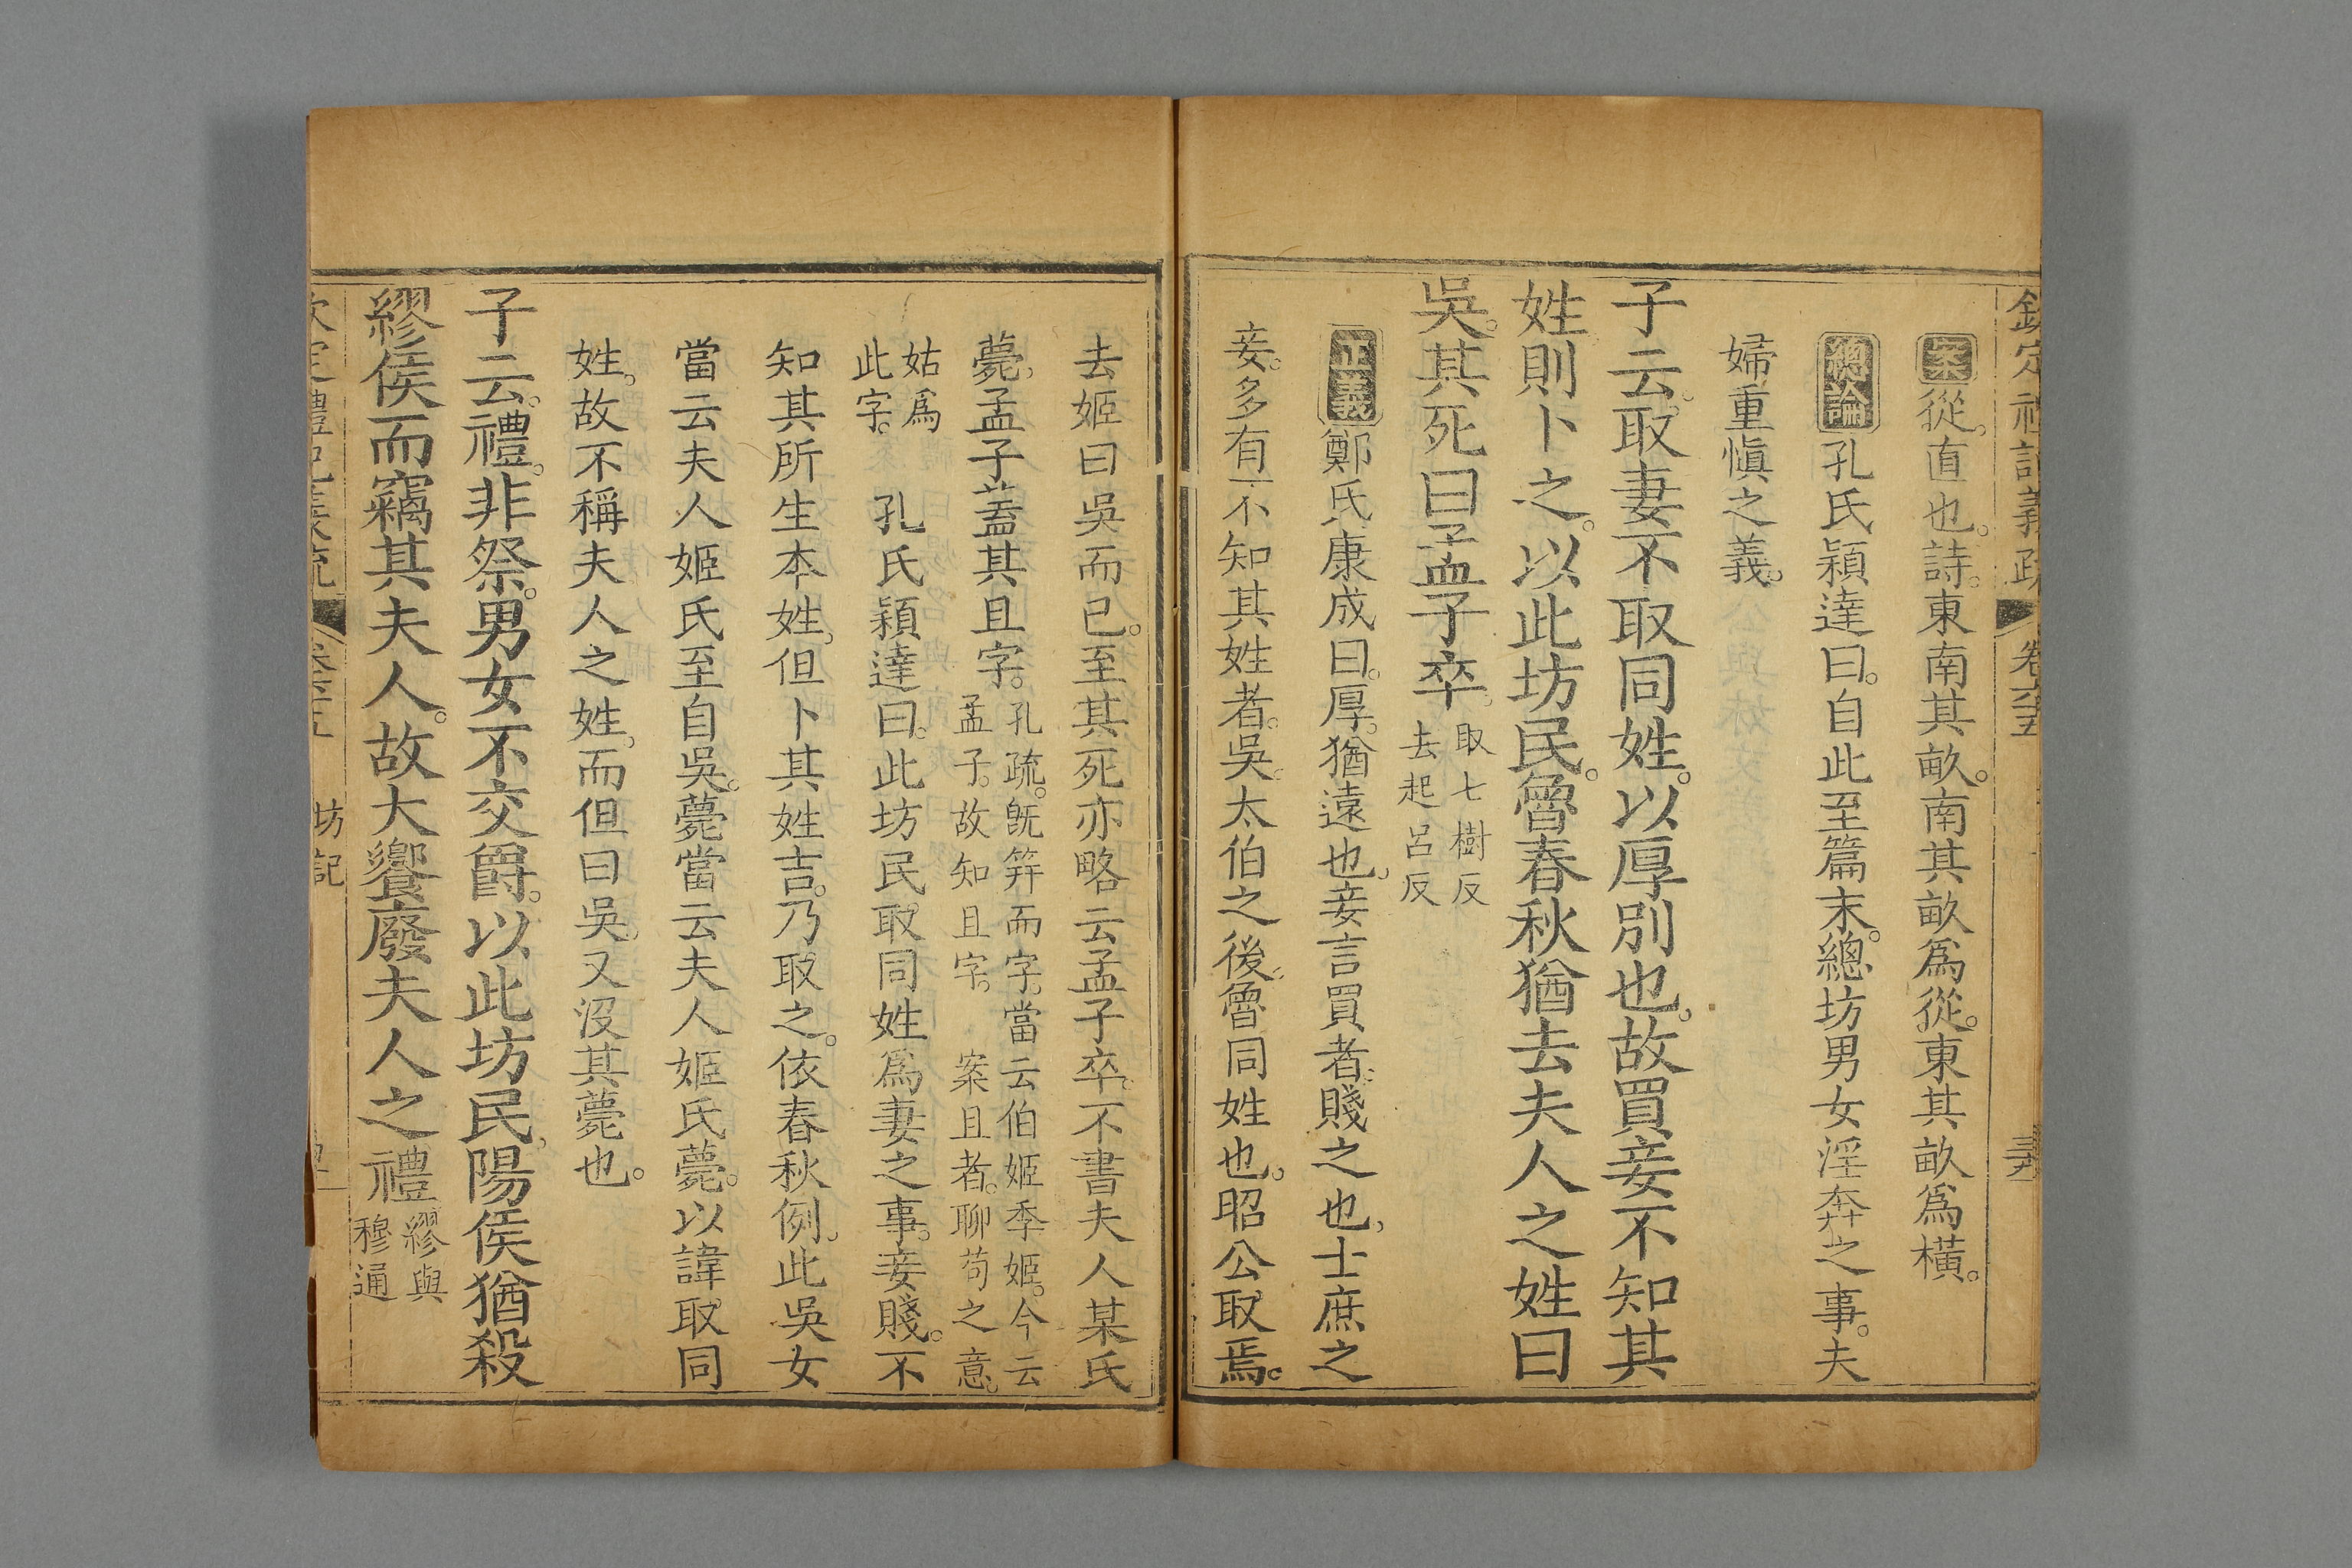 欽定禮記義疏 卷六十五
案從。直也。詩。東南其畝。南其畝爲從。東其畝爲橫。
總論孔氏穎達曰。自此至篇末。總坊男女淫奔之事。夫
婦重愼之義。
子云。取妻不取同姓。以厚別也。故買妾不知其
姓。則卜之。以此坊民。魯春秋猶去夫人之姓曰
吳。其死曰孟子卒。取七樹反
去起呂反
正義鄭氏康成曰。厚。猶遠也。妾言買者。賤之也。士庶之
妾。多有不知其姓者。吳。太伯之後。魯同姓也。昭公取焉。
去姬曰吳而已。至其死亦略云孟子卒。不書夫人某氏
薨。孟子蓋其且字。孔疏。旣筓而字。當云伯姬季姬。今云
孟子。故知且字。 案且者。聊茍之意。
姑爲
此字。 孔氏穎達曰。此坊民取同姓爲妻之事。妾賤。不
知其所生本姓。但卜其姓吉。乃取之。依春秋例。此吳女
當云夫人姬氏至自吳。薨當云夫人姬氏薨。以諱取同
姓。故不稱夫人之姓。而但曰吳。又沒其薨也。
子云。禮。非祭。男女不交爵。以此坊民。陽侯猶殺
繆侯而竊其夫人。故大饗廢夫人之禮繆與
穆通
坊記